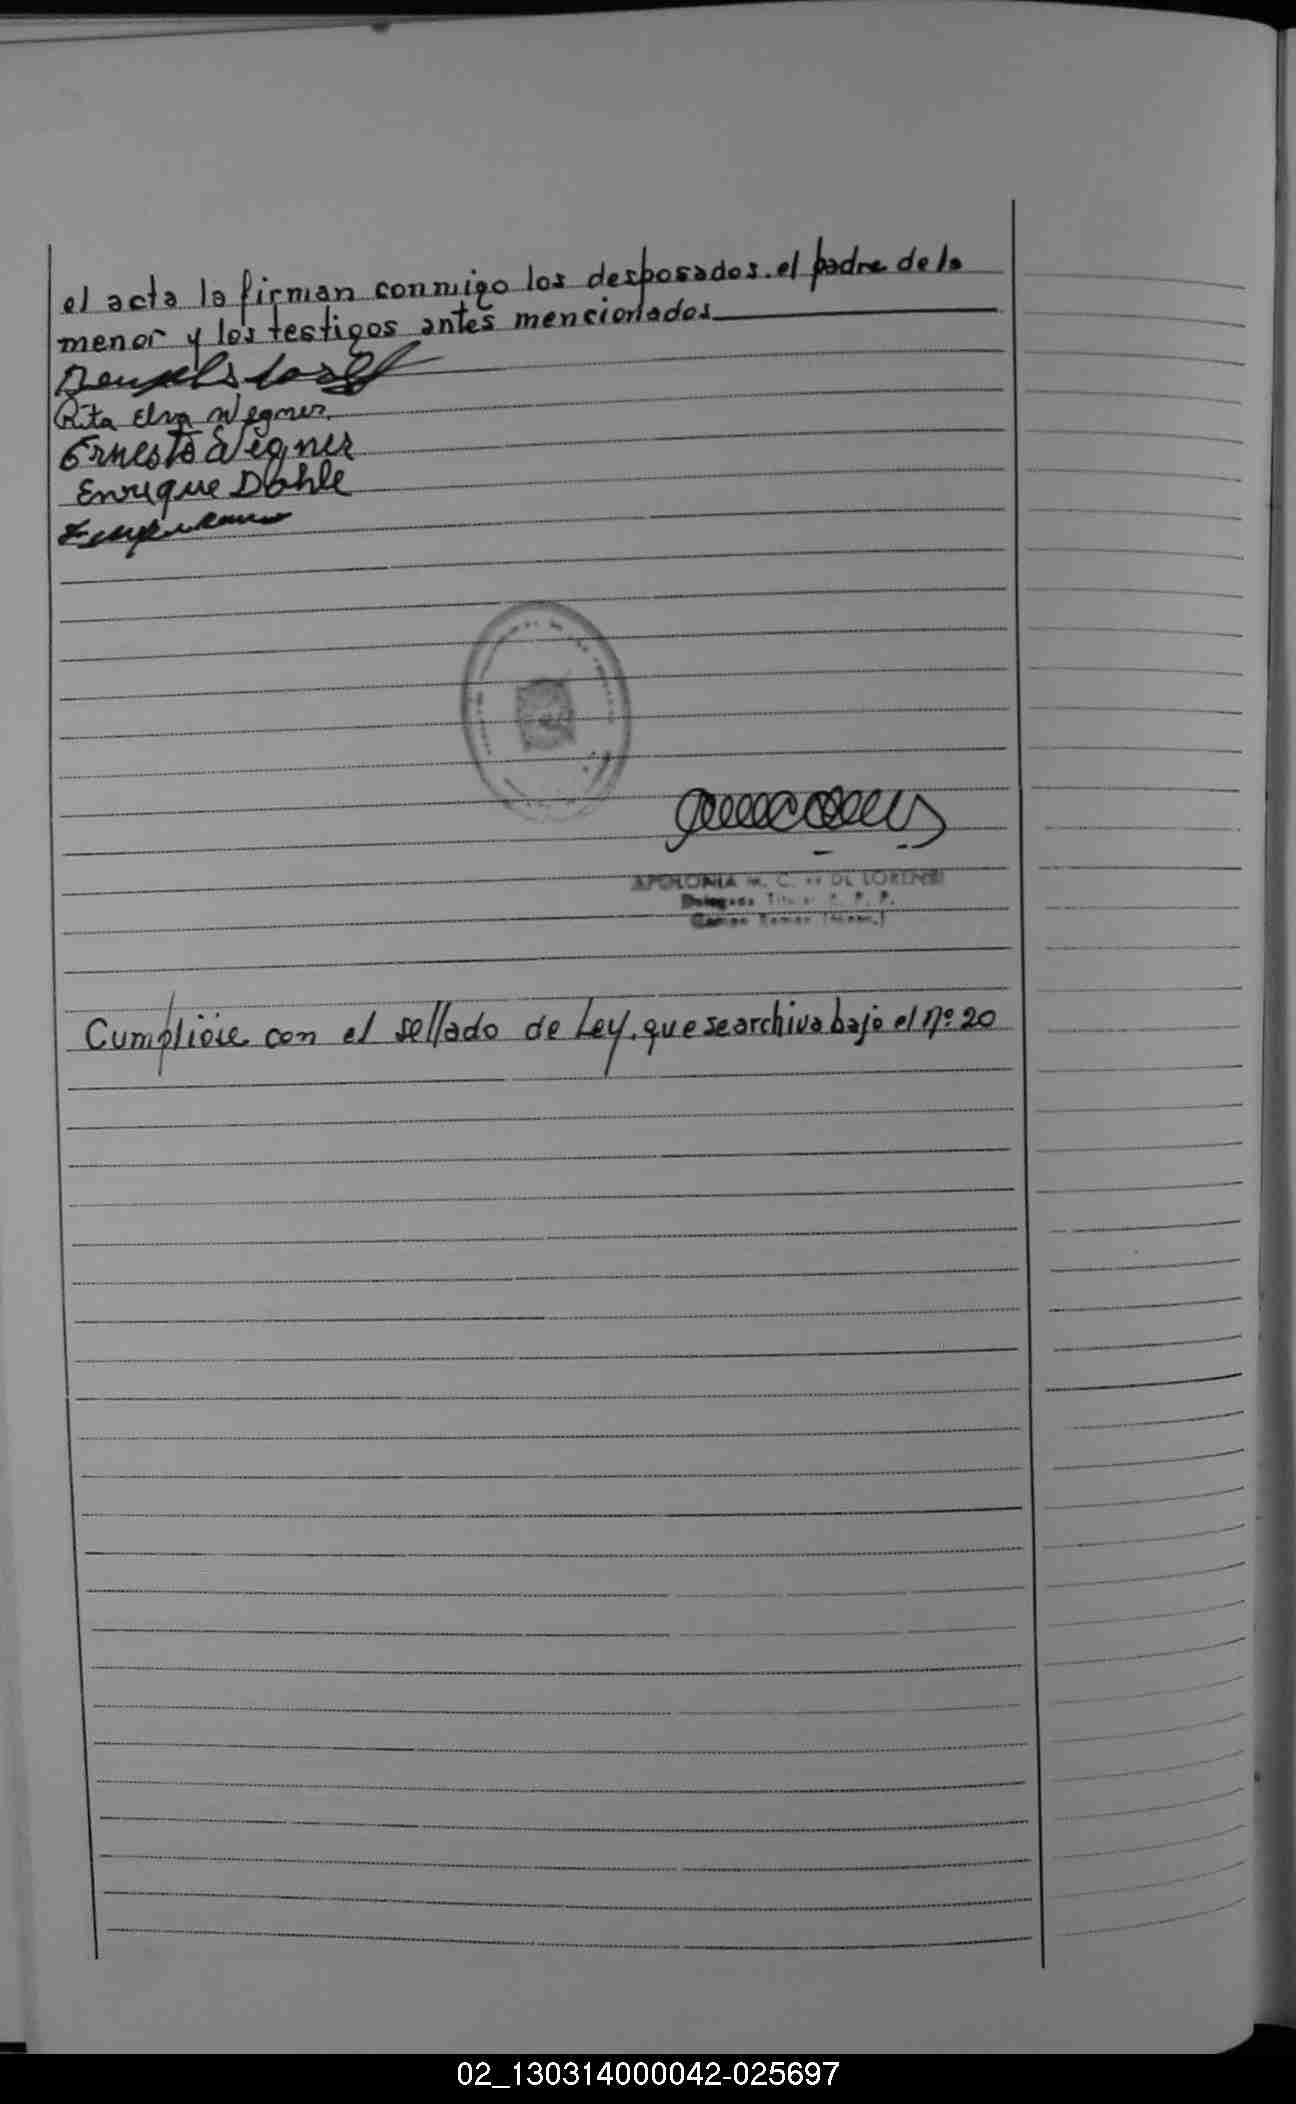 el acta la firman conmigo los desposados. el padre de la
menor y los testigos antes mencionados
Rita Elva Wegner
Ernesto Wegner
Enrique Dahle
APOLONIA M. C. DE LORENZI
Delegada Titular R. P. P.
Cumplióse con el sellado de Ley. que se archiva bajo el nº 20
02_130314000042-025697